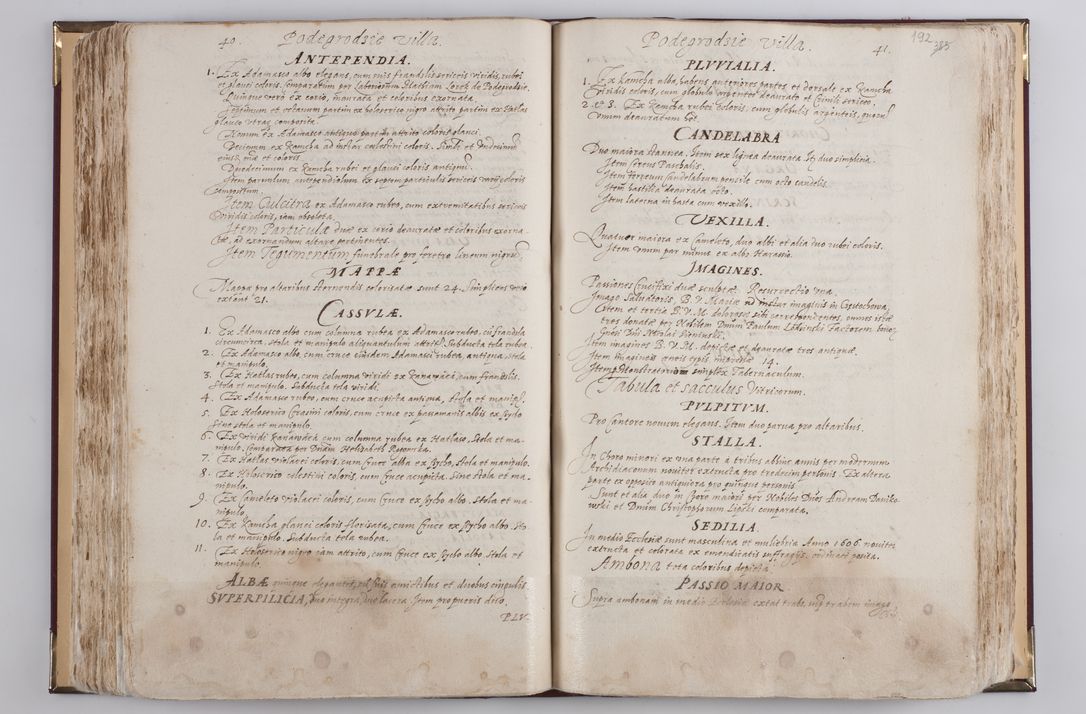 40. Podegrodzie Villa.
ANTEPENDIA.
1. Ex Adamasco albo elegans, cum suis frandslis sericeis viridis, rubei
et glauci coloris. Comparatum per Laboriosum Mathiam Lorek de Podegrodzie.
Quinque vero ex corio, inaurata et coloribus exornata.
Septimum et octavum partim ex holoserico nigro attrito partim ex Hatlas
glauco utraq composita.
Nonum ex Adamasco antiquo partim attrito coloris glauci.
Decimum ex Kamcha ad instar coelestini coloris. Simile et Undecimum
eiusd. mae et coloris
Duodecimum ex Kamcha rubei et glauci coloris antiqui.
Item parvulum antependiolum ex septem particulis sericeis varii coloris
compositum.
Item Culcitra ex Adamasco rubeo, cum extremitatibus sericeis
viridis coloris, iam obsoleta.
Item Particulae duae ex corio deauratae et coloribus exorna-
tae, ad exornandum altare pertinentes.
Item Tegumentum funebrale pro feretro lineum nigrum.
MAPPÆ
Mappae pro altaribus sternendis colorisatae sunt 24. Simplices vero
extant 21.
CASSULÆ.
1. Ex Adamasco albo cum columna rubea ex Adamasco rubeo, cu frandula
circumiecta, stola et manipulo aliquantulum attritis. Subducta tela rubea.
2. Ex Adamasco albo, cum cruce eiusdem Adamasci rubea, antiqua, stola
et manipulo.
3. Ex Hatlas rubeo, cum columna viridi ex Kanawaca, cum frandslis.
Stola et manipulo. Subducta tela viridi.
4. Ex Adamasco rubeo, cum cruce acupicta antiqua, stola et manipl.
5. Ex Holoserico Crasini coloris, cum cruce ex passamanis albis ex Sycho
sine stola et manipulo.
6. Ex viridi Kanawaca cum columna rubea ex Hatlaso, Stola et ma-
nipulo. Comparata per Dnam Helizabeth
7. Ex Hatlas violacei coloris, cum Cruce alba ex Sycho, Stola et manipulo.
8. Ex Holosrico celestini coloris, cum Cruce acupicta. Sine Stola et ma-
nipulo.
9. Ex Cameleto violacei coloris, cum Cruce ex Sycho albo. Stola et ma-
nipulo.
10. Ex Kamcha glauci coloris florisata, cum Cruce ex Sycho albo. Sto
la et manipulo. Subducta tela rubea.
11. Ex Holoserico nigro iam attrito, cum Cruce ex Sycho albo, Stola et
manipulo.
ALBÆ quinque elegantes, cum suis amictibus et duobus cingulis
SUPERPILICIA, duo integra, duo lacera. Item pro pueris duo.
PLV
Podegrodzie Villa. 41.
192
385
PLUVIALIA.
1. Ex Kamcha alba, habens anteriores partes et dorsale ex Kamcha
viridis coloris, cum globulo argenteo deaurato et Simili sericeo.
2. et 3. Ex Kamcha rubei coloris, cum globulis argenteis, quorum
unum deauratum est.
CANDELABRA
Duo maiora stannea. Item sex lignea deaurata Itq duo simplicia.
Item Cereus Paschalis.
Item ferreum Candelabrum pensile cum octo candelis.
Item hastilia deaurata octo.
Item laterna in hasta cum vexillo.
VEXILLA.
Quatuor maiora ex Cameleto, duo albi et alia duo rubei coloris.
Item unum par minus ex albo Harasio.
IMAGINES.
Passiones Crucifixi duae sculptae. Resurrectio una.
Imago Salvatoris, B. V. Mariae ad instar imaginis in Częstochowa,
Item et tertia B. V. M. dolorosae, sibi correspondentes, omnes istae
tres donatae per Nobilem Dnum Paulum Factorem bono
Gnosi Dni Nicolai
Item imagines B. V. M. depictae et deauratae tres antiquae.
Item imagines aeneis typis impressae 14.
Item Monstratorium simplex Tabernaculum.
Tabula et sacculus Vitricorum.
PULPITUM.
Pro Cantore novum elegans. Item duo parva pro altaribus.
STALLA.
In Choro minori ex una parte à tribus abhinc annis per modernum
Archidiaconum noviter extructa pro tredecim personis. Ex altera
parte ex opposito antiquiora pro quinque personis.
Sunt et alia duo in Choro maiori per Nobiles Dnos Andream Daniko-
wski et Dnum Christophorum Lipski comparata.
SEDILIA.
In medio Ecclesiae sunt masculina et muliebria Anno 1606 noviter
extructa et colorata ex emendicatis suffragys, ordinate posita.
Ambona tota coloribus depicta.
PASSIO MAIOR
Supra ambonam in medio Ecclesiae extat trabs, supra trabem imago